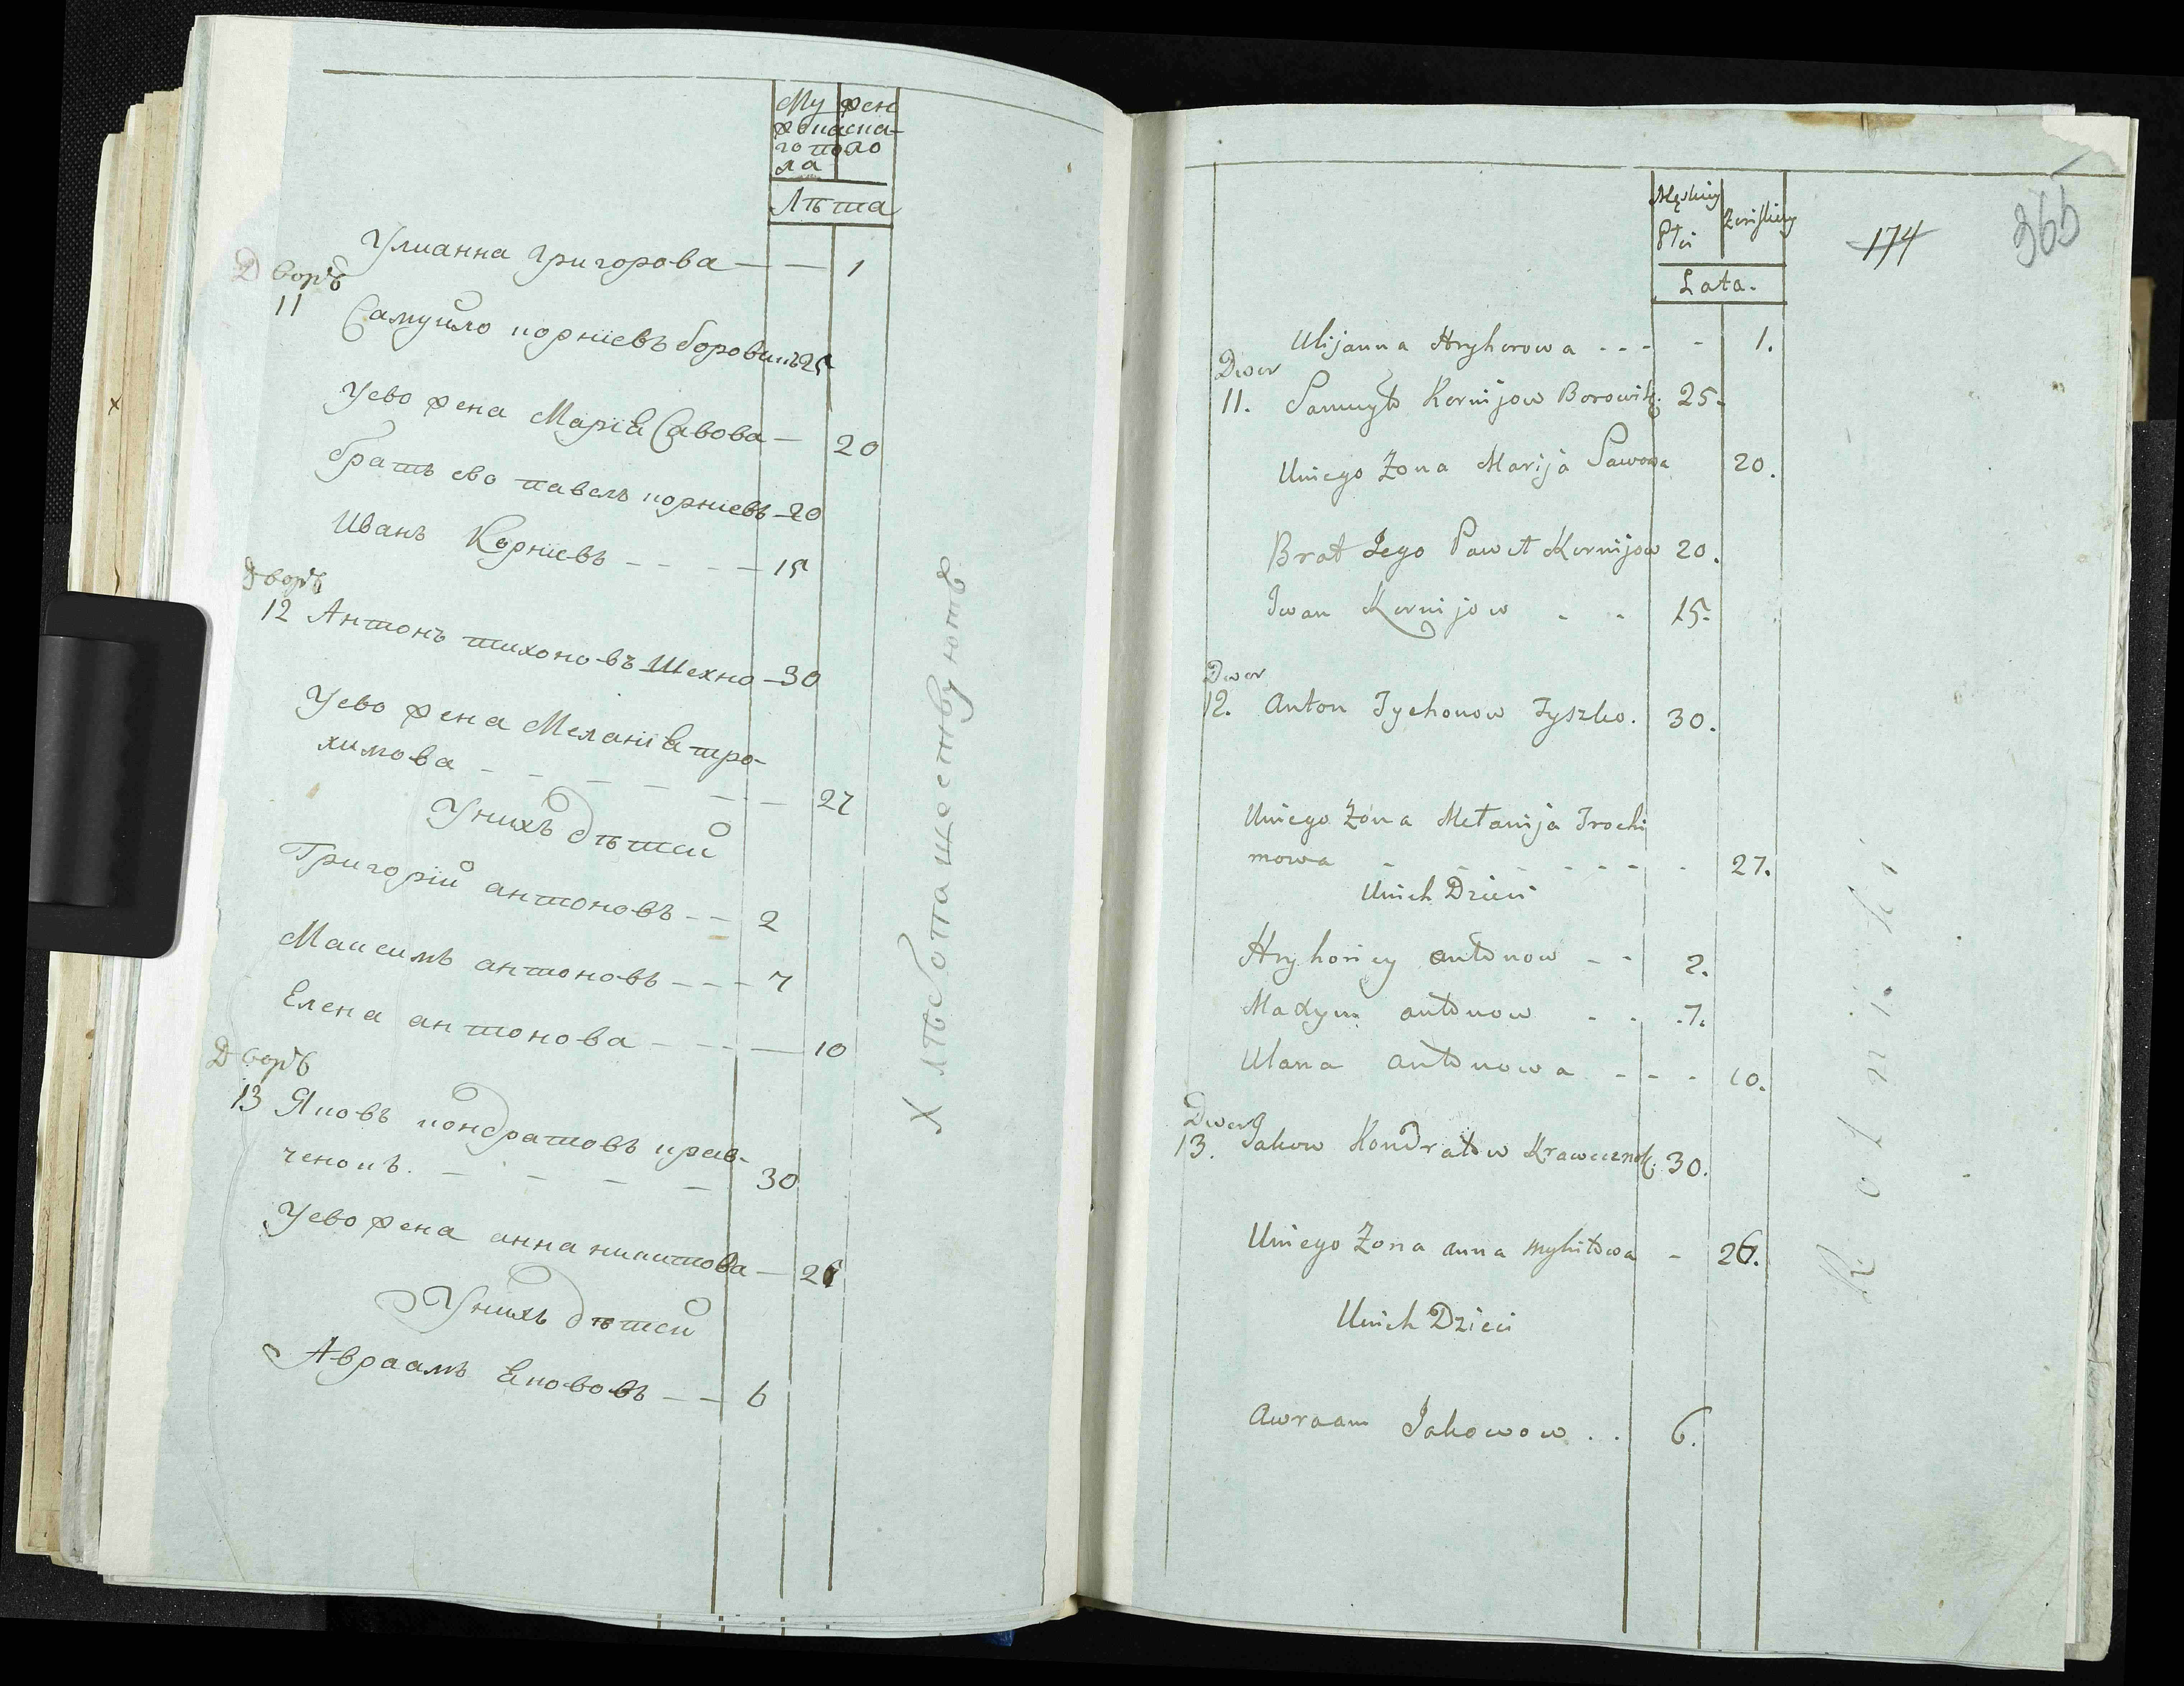 Му жен
жескаска-
го поло по
ла
Лѣта
Улианна григорова — — 1
Дворъ
11 Самуйло корнѣевъ боровикъ 25
Уево жена Марія Савова — 20
братъ ево павелъ корніевъ — 20
Иванъ Корніевъ - - - - 15
Дворъ
12 Антонъ тихоновъ Шехно — 30
Уево жена Меланія тро-
химова - - - - - - 27
Унихъ дѣтей
Григорій антоновъ - - 2
Максимъ антоновъ - - - 7
Елена антонова - - - - 10
Дворъ
13 Яковъ кондратовъ крав-
ченокъ. - - - - 30
Уево жена анна никитова — 26
Унихъ дѣтей
Авраамъ Якововъ - - 6
Хлѣбопашествуютъ
Męskiey Żeńskiey
Płci
Lata.
174
366
Ulijanna Hryhorowa - - - - 1.
Dwor
11. Samuyło Kornijow Borowik. 25.
Uniego Żona Marija Sawowa 20.
Brat Jego Paweł Kornijow 20.
Iwan Kornijow - - 15.
Dwor
12. Anton Tychonow Tyszko. 30.
Uniego Żona Mełanija Trochi
mowa - - - - - - - 27.
Unich Dzieci
Hryhoriey antonow - - 2.
Maxym antonow - - 7.
Ulana antonowa - - - 10.
Dwor
13. Jakow Kondratow Krawczenok. 30.
Uniego Żona anna mykitowa - 26.
Unich Dzieci
awraam Jakowow . . 6.
Rolniki